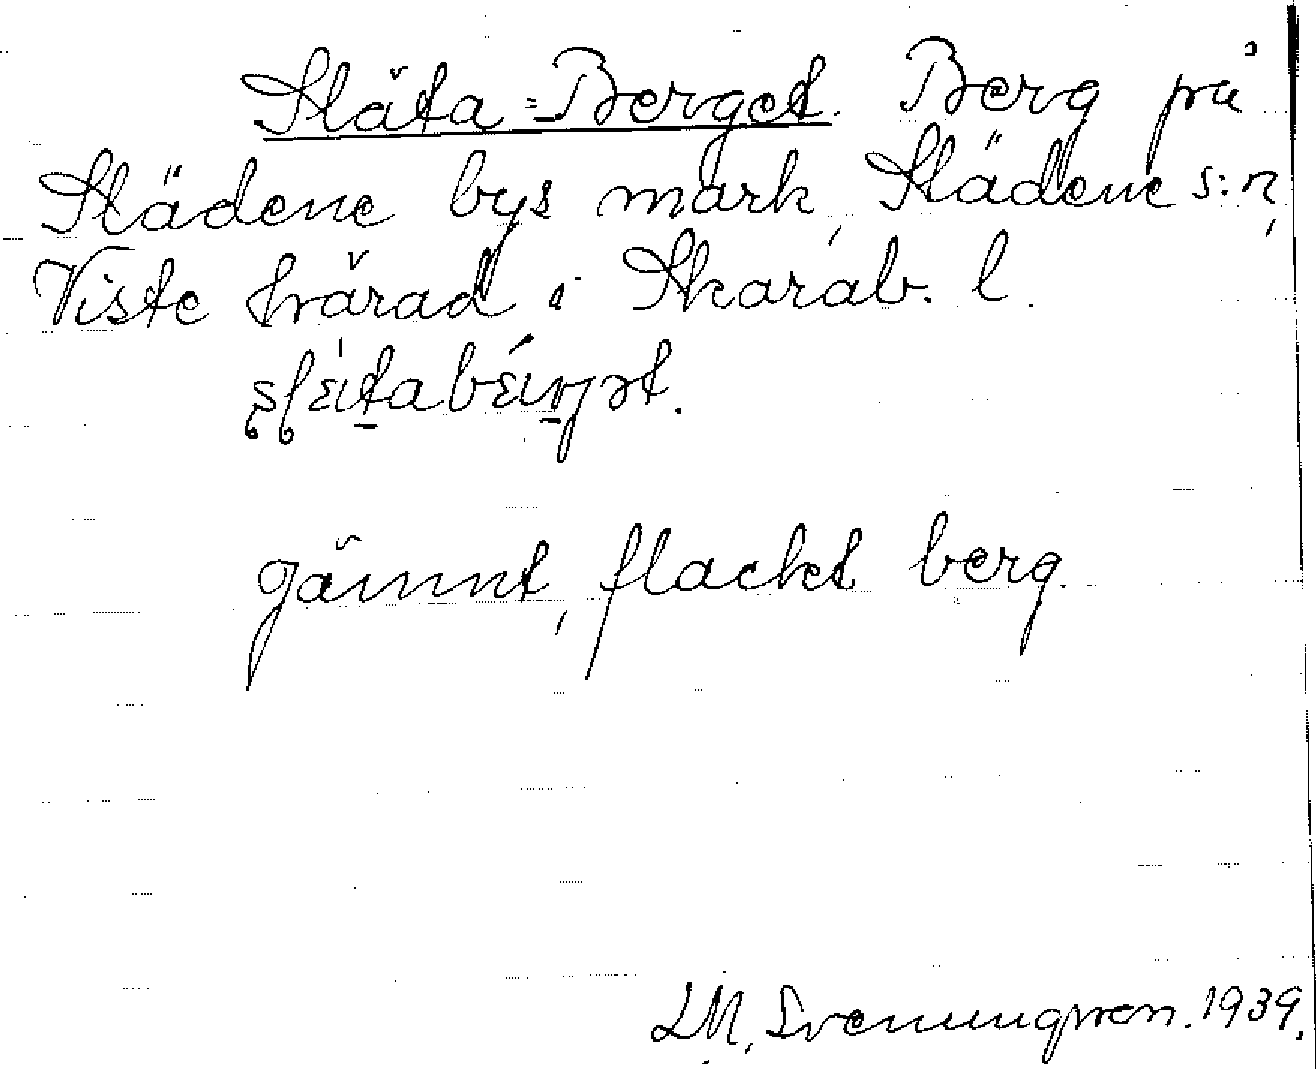 Släta-Berget. Berg på
Slädene bys mark, Slädene s:n,
Viste härad i Skarab. l.
gämnt, flackt berg.
L.M. Svenungsson. 1939.